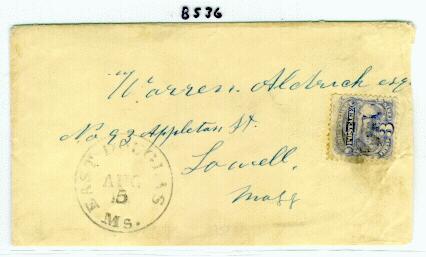 B536
Warren Aldrich esq
No 93 Appleton St.
Lowell,
Mass
EAST DOUGLAS
AUG
5
Ms.